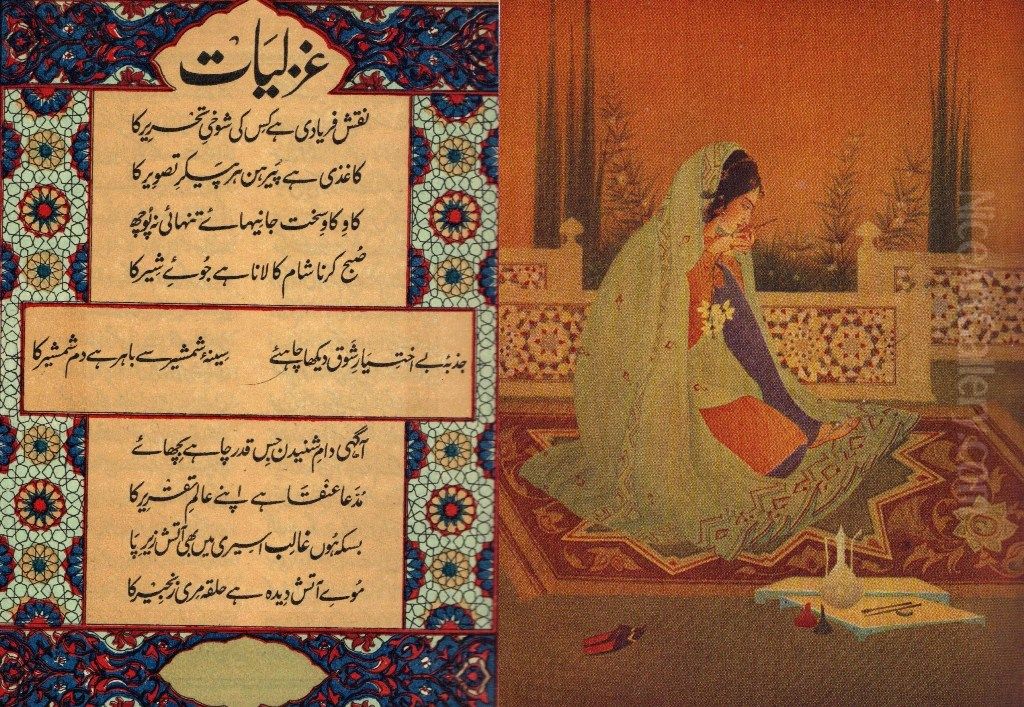 غزلیات
نقش فریادی ہے کس کی شوخیِ تحریر کا
کاغذی ہے پَیرہن ہر پَیکرِ تصویر کا
کاوِ کاوِ سخت جانیہائے تنہائی نہ پُوچھ
صُبح کرنا شام کا لانا ہے جُوئے شِیر کا
جذبۂ بے اختیارِ شوق دیکھا چاہئے سینۂ شمشیر سے باہر ہے دم شمشیر کا
آگہی دامِ شنیدن جِس قدر چاہے بچھائے
مُدّعا عنقا ہے اپنے عالمِ تقریر کا
بسکہ ہُوں غالب اسیری میں بھی آتش زیرِ پا
مُوئے آتش دِیدہ ہے حلقہ مِری زنجیر کا